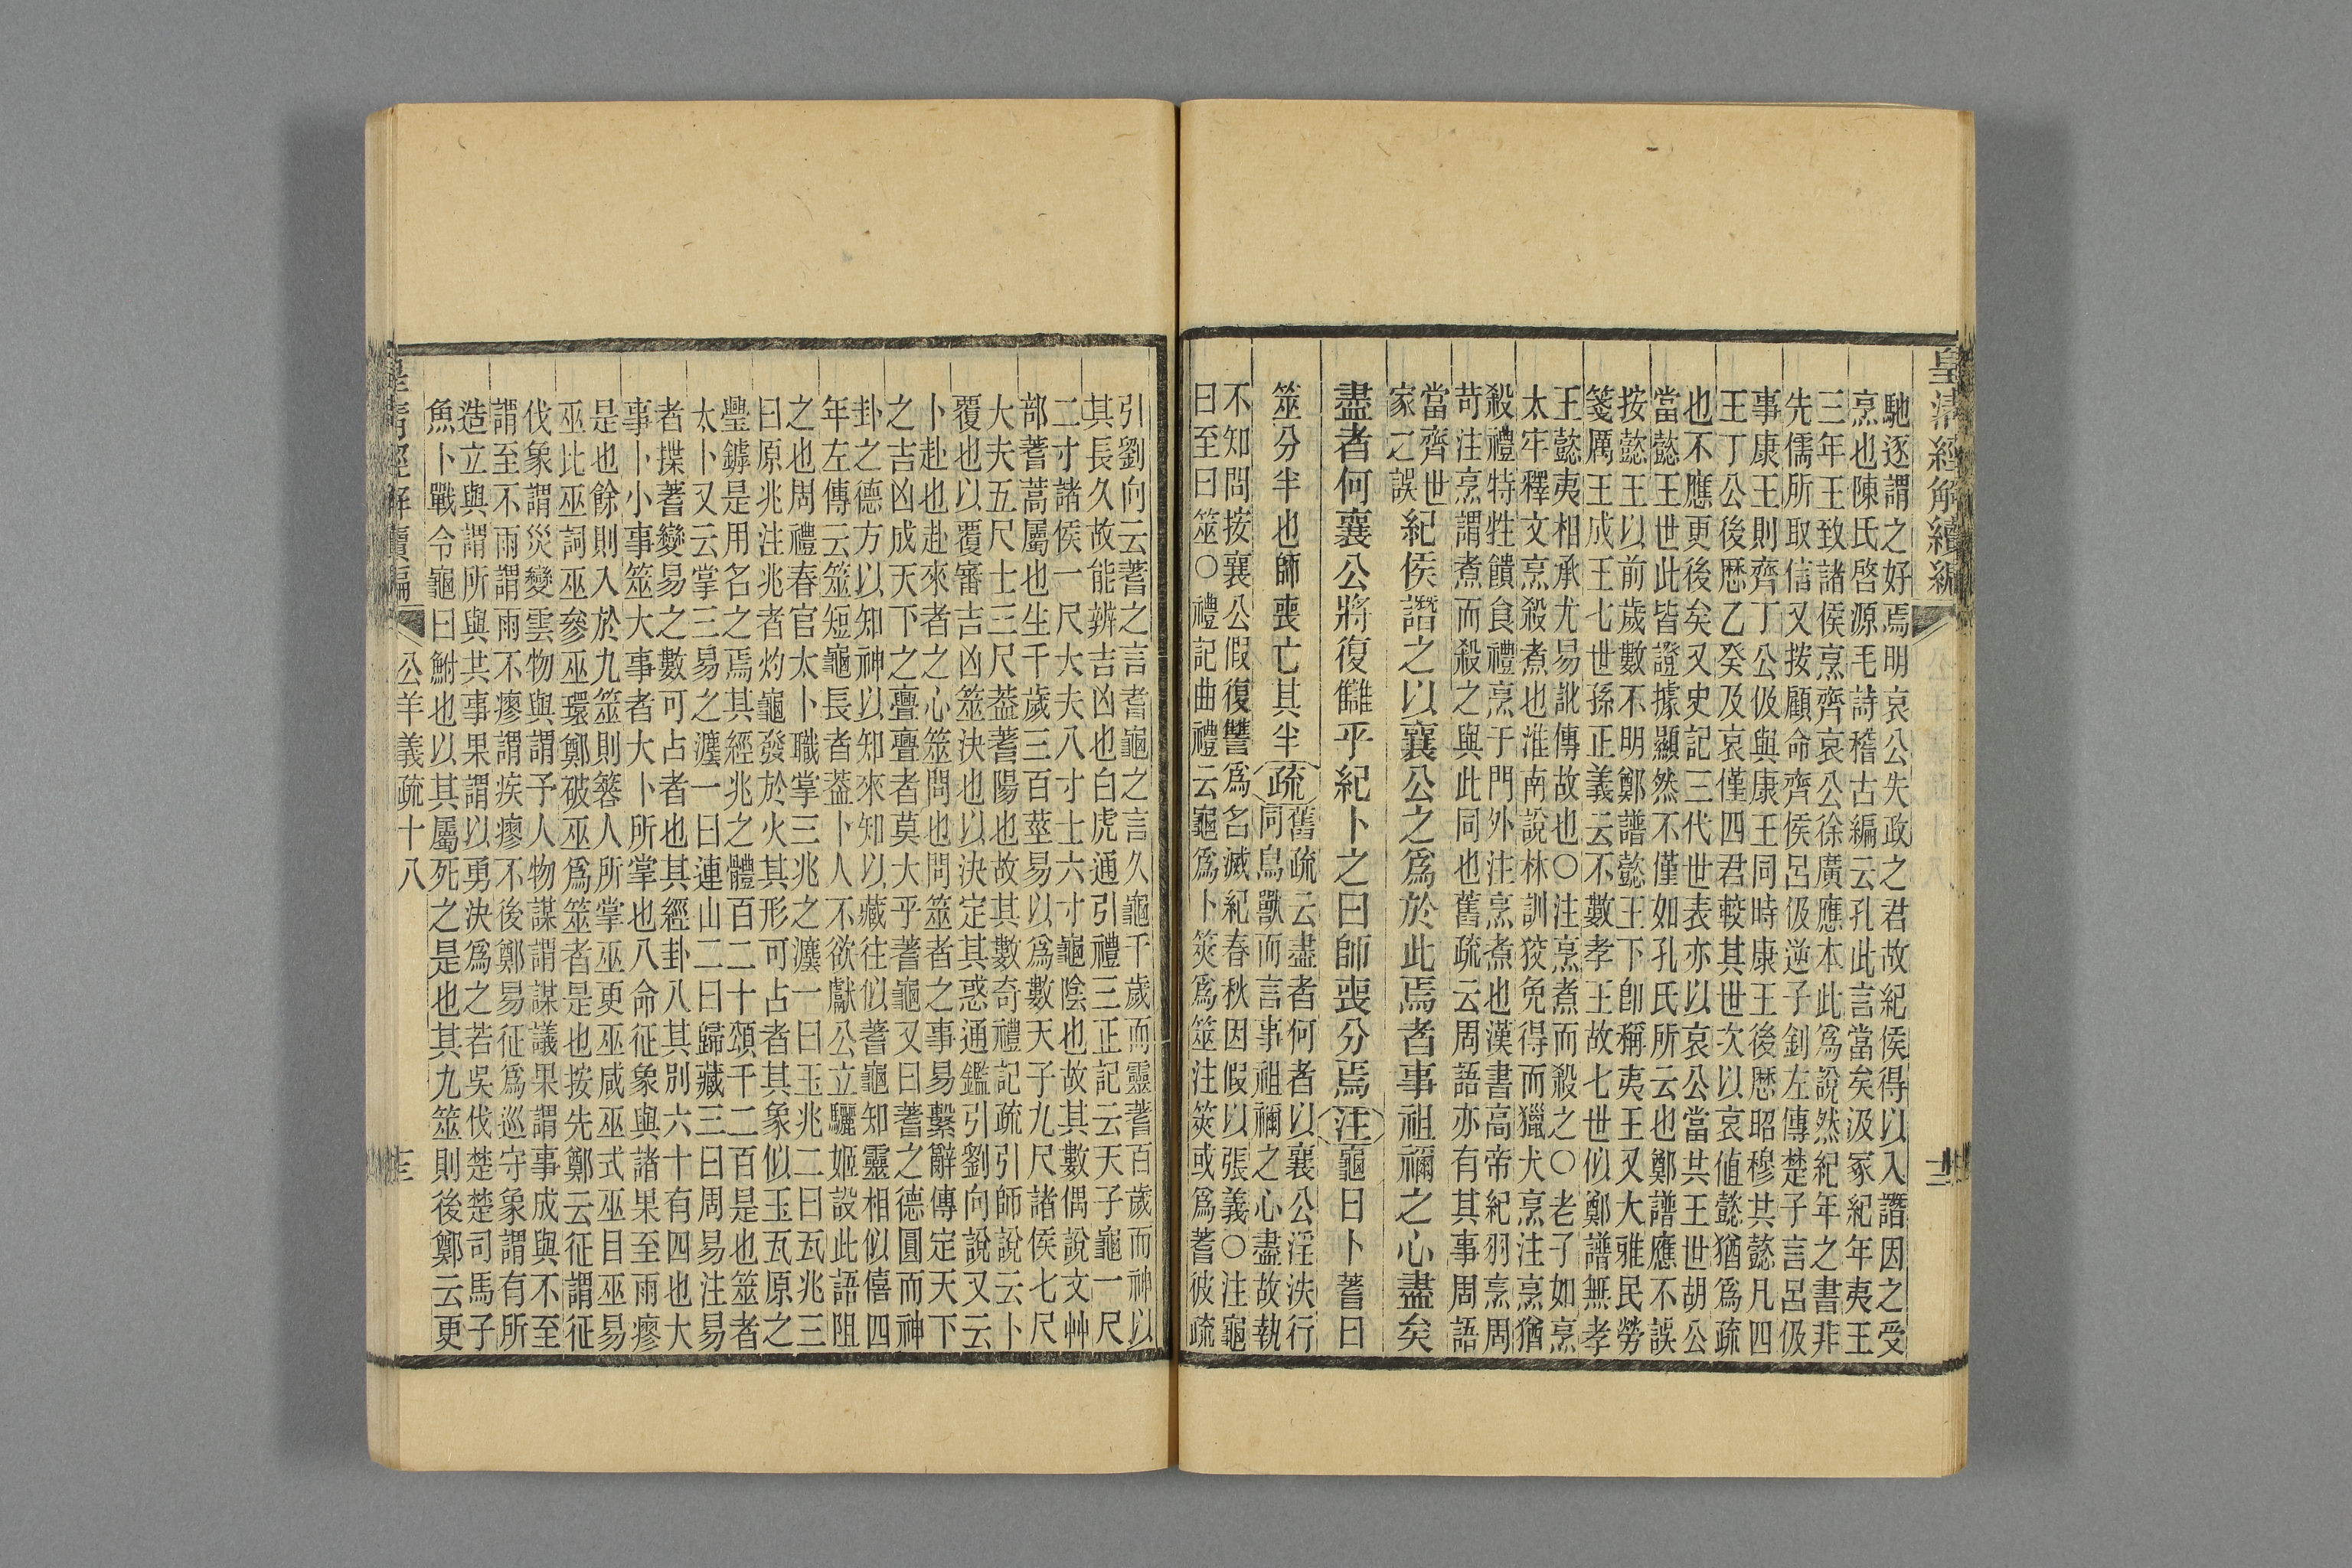 皇清經解續編
十二
馳逐謂之好焉明哀公失政之君故紀侯得以入譖因之受
烹也陳氏啓源毛詩稽古編云孔此言當矣汲冢紀年夷王
三年王致諸侯烹齊哀公徐廣應本此爲說然紀年之書非
先儒所取信又按顧命齊侯呂伋逆子釗左傳楚子言呂伋
事康王則齊丁公伋與康王同時康王後歴昭穆共懿凡四
王丁公後歴乙癸及哀僅四君較其世次以哀值懿猶爲疏
也不應更後矣又史記三代世表亦以哀公當共王世胡公
當懿王世此皆證據顯然不僅如孔氏所云也鄭譜應不誤
按懿王以前歲數不明鄭譜懿王下卽稱夷王又大雅民勞
箋厲王成王七世孫正義云不數孝王故七世似鄭譜無孝
王懿夷相承尤易訛傳故也○注烹煮而殺之○老子如烹
太牢釋文烹殺煮也淮南說林訓狡兔得而獵犬烹注烹猶
殺禮特牲饋食禮烹于門外注烹煮也漢書高帝紀羽烹周
苛注烹謂煮而殺之與此同也舊疏云周語亦有其事周語
當齊世
家之誤
紀侯譖之以襄公之爲於此焉者事祖禰之心盡矣
盡者何襄公將復讎乎紀卜之曰師喪分焉注龜曰卜蓍曰
筮分半也師喪亡其半疏
舊疏云盡者何者以襄公淫泆行
同鳥獸而言事祖禰之心盡故執
不知問按襄公假復讐爲名滅紀春秋因假以張義○注龜
曰至曰筮○禮記曲禮云龜爲卜筴爲筮注筴或爲蓍彼疏
引劉向云蓍之言耆龜之言久龜千歲而靈蓍百歲而神以
其長久故能辨吉凶也白虎通引禮三正記云天子龜一尺
二寸諸侯一尺大夫八寸士六寸龜陰也故其數偶說文艸
部蓍蒿屬也生千歲三百莖易以爲數天子九尺諸侯七尺
大夫五尺士三尺葢蓍陽也故其數奇禮記疏引師說云卜
覆也以覆審吉凶筮決也以決定其惑通鑑引劉向說又云
卜赴也赴來者之心筮問也問筮者之事易繫辭傳定天下
之吉凶成天下之亹亹者莫大乎蓍龜又曰蓍之德圓而神
卦之德方以知神以知來知以藏往似蓍龜知靈相似僖四
年左傳云筮短龜長者葢卜人不欲獻公立驪姬設此語阻
之也周禮春官太卜職掌三兆之灋一曰玉兆二曰瓦兆三
曰原兆注兆者灼龜發於火其形可占者其象似玉瓦原之
璺鏬是用名之焉其經兆之體百二十頌千二百是也筮者
太卜又云掌三易之灋一曰連山二曰歸藏三曰周易注易
者揲蓍變易之數可占者也其經卦八其別六十有四也大
事卜小事筮大事者大卜所掌也八命征象與諸果至雨瘳
是也餘則入於九筮則簭人所掌巫更巫咸巫式巫目巫易
巫比巫詞巫參巫環鄭破巫爲筮者是也按先鄭云征謂征
伐象謂災變雲物與謂予人物謀謂謀議果謂事成與不至
謂至不雨謂雨不瘳謂疾瘳不後鄭易征爲巡守象謂有所
造立與謂所與共事果謂以勇決爲之若吳伐楚楚司馬子
魚卜戰令龜曰鮒也以其屬死之是也其九筮則後鄭云更
皇清經解續編
公羊義疏十八
十三